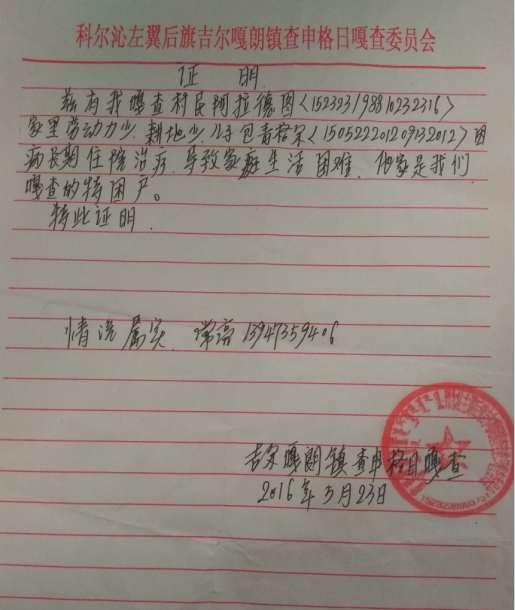 科尔沁左翼后旗吉尔嘎朗镇查申格日嘎查委员会
证 明
兹有我嘎查村民阿拉德图<152323198810232316>
家里劳动力少、耕地少、儿子包青格尔<150522201209132012>因
病长期住院治疗、导致家庭生活困难、他家是我们
嘎查的特困户。
特此证明.
情况属实 13947359406
吉尔嘎朗镇查申格日嘎查
2016年5月23日